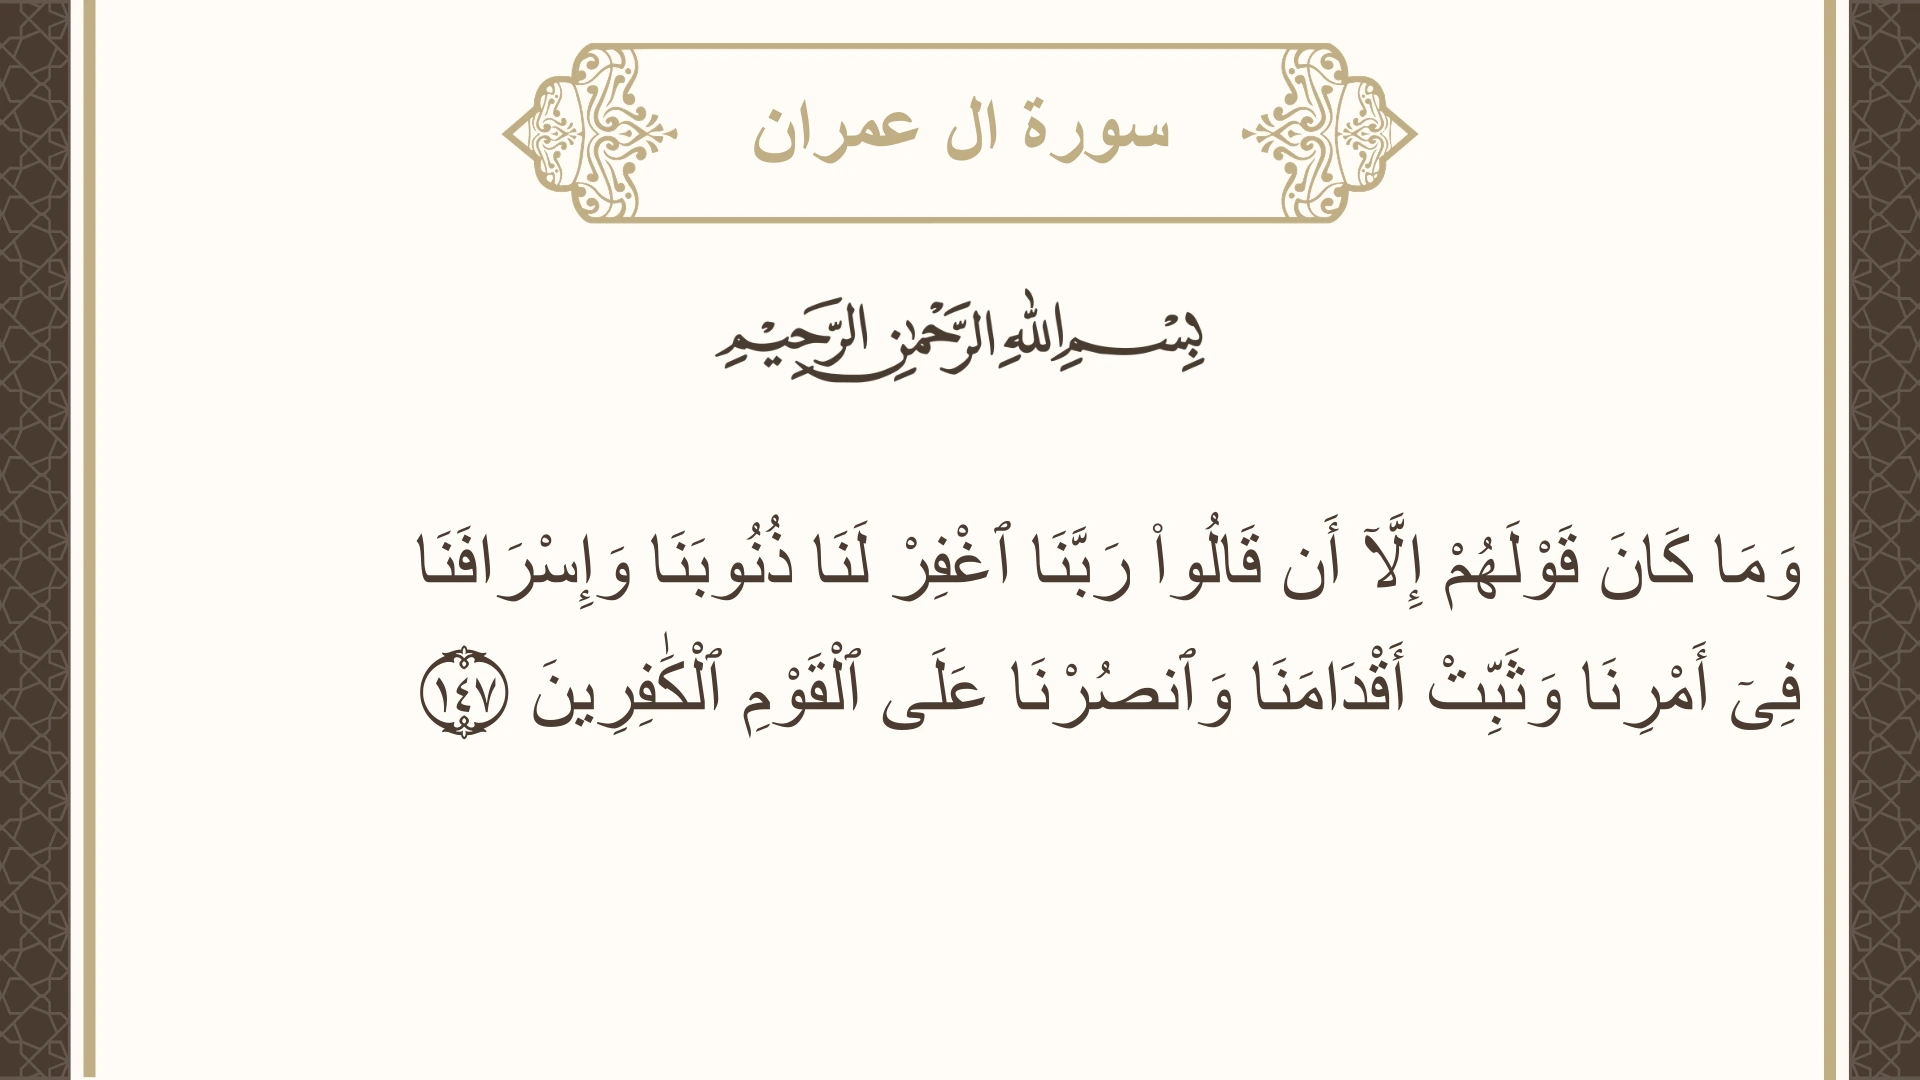 سورة ال عمران
بِسْمِ اللهِ الرَّحْمٰنِ الرَّحِيْمِ
وَمَا كَانَ قَوْلَهُمْ إِلَّآ أَن قَالُوا۟ رَبَّنَا ٱغْفِرْ لَنَا ذُنُوبَنَا وَإِسْرَافَنَا
فِىٓ أَمْرِنَا وَثَبِّتْ أَقْدَامَنَا وَٱنصُرْنَا عَلَى ٱلْقَوْمِ ٱلْكَٰفِرِينَ ١٤٧